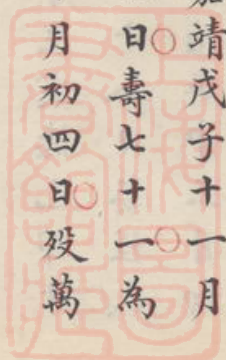 靖戊子十一月
日壽七十一為
月初四日歿萬